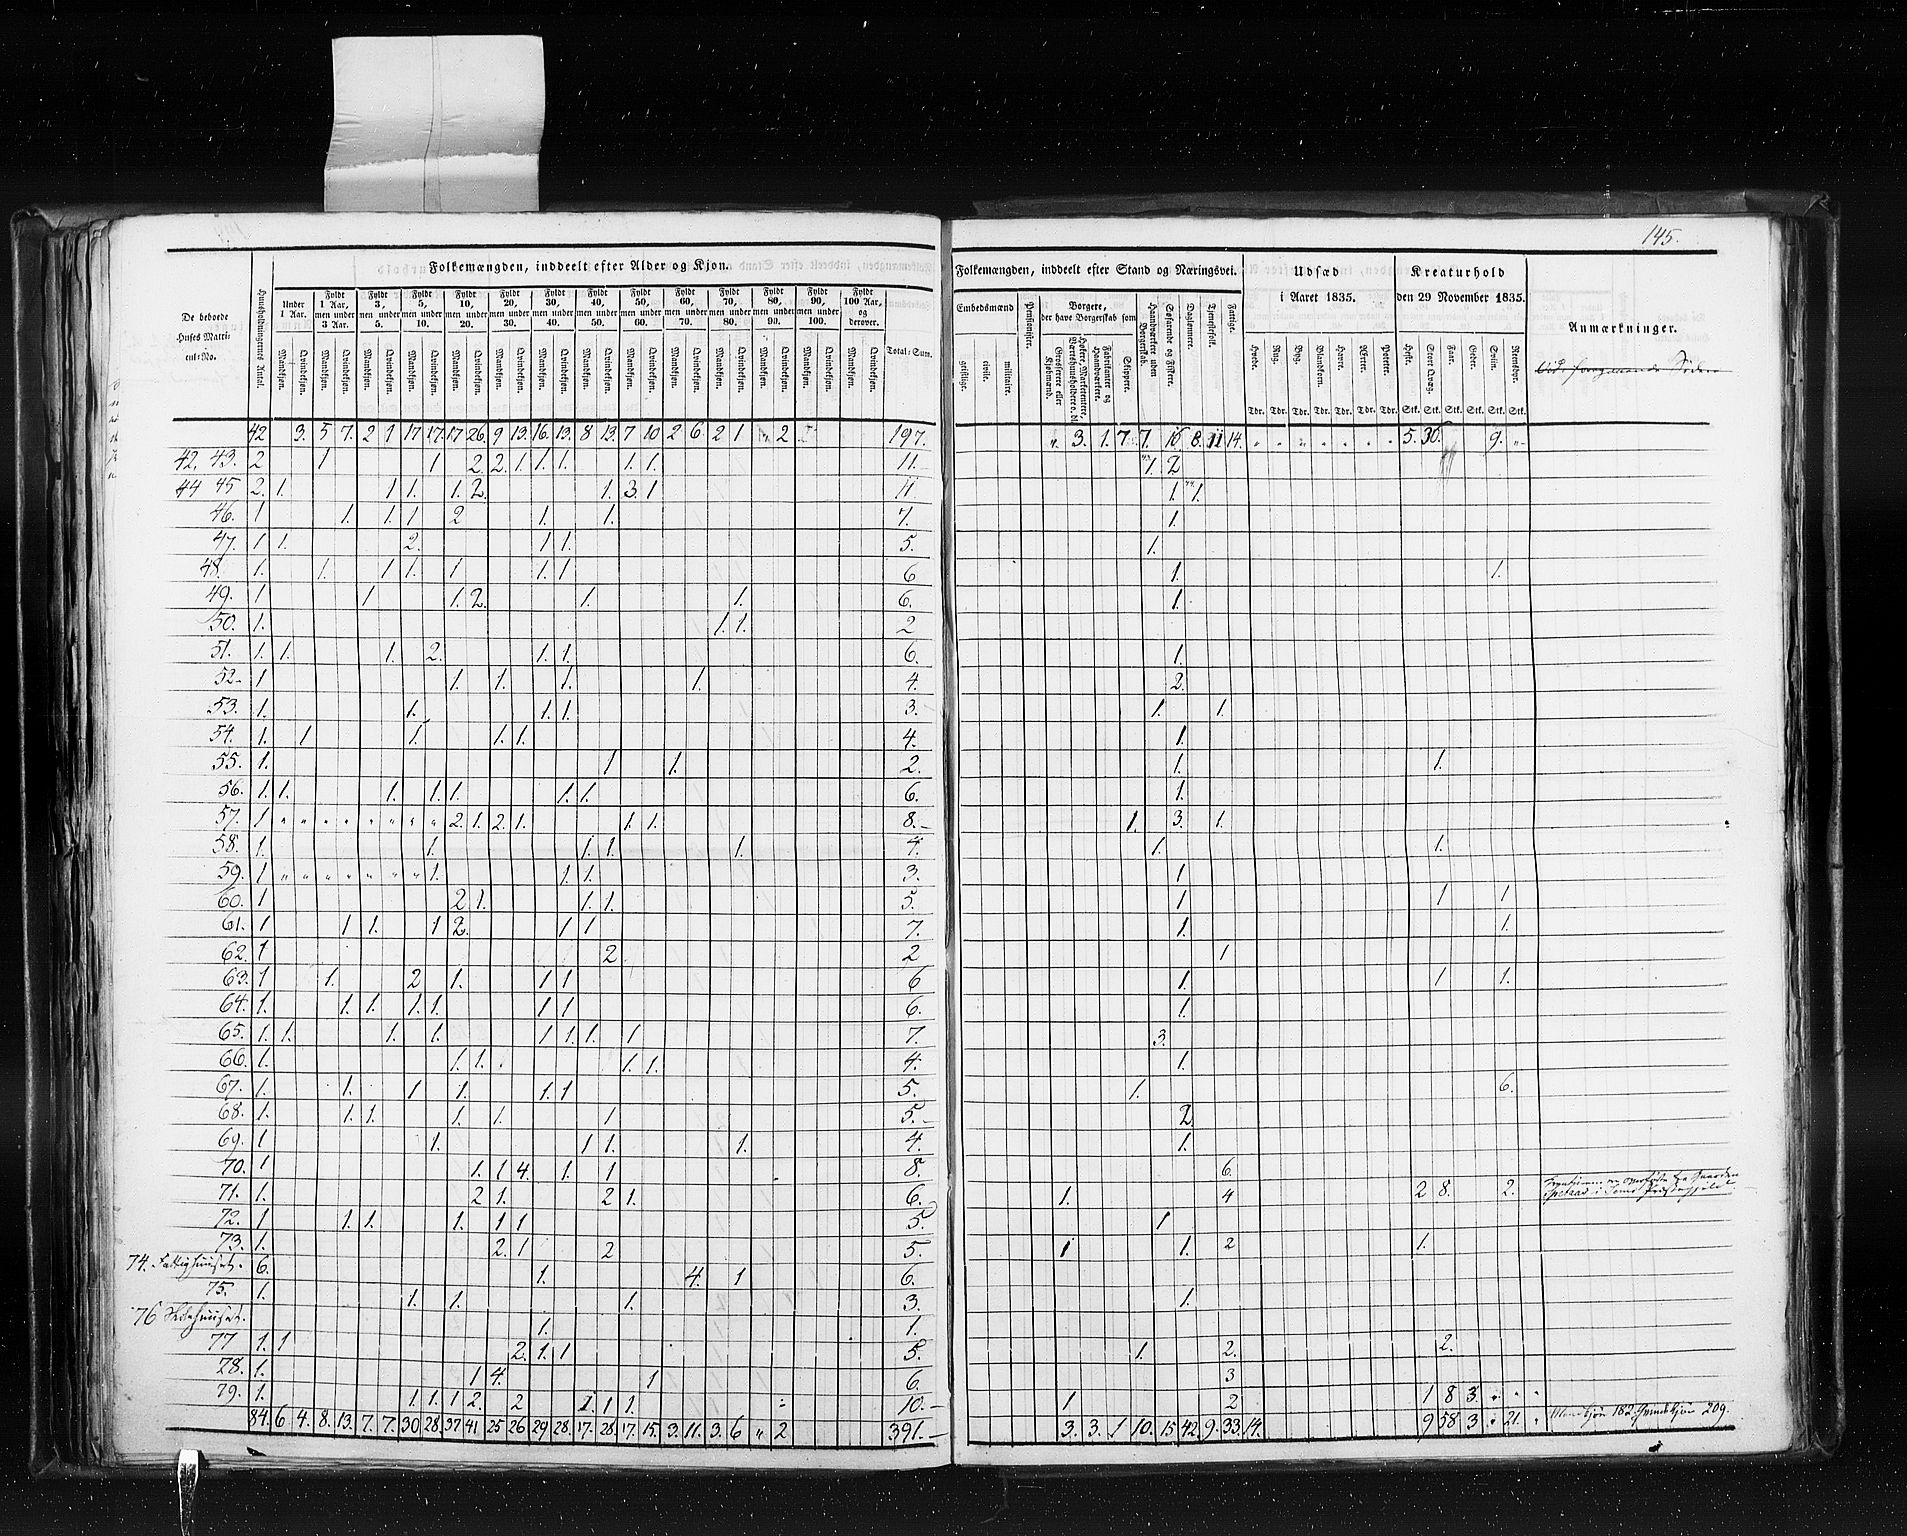 145.
Folkemængden, inddeelt efter Alder og Kjøn.
De beboede Huses Matricul-No.
Huusholdningernes Antal.
Under 1 Aar.
Fyldt 1 Aar, men under 3 Aar.
Fyldt 3, men under 5.
Fyldt 5, men under 10.
Fyldt 10, men under 20.
Fyldt 20, men under 30.
Fyldt 30, men under 40.
Fyldt 40, men under 50.
Fyldt 50, men under 60.
Fyldt 60, men under 70.
Fyldt 70, men under 80.
Fyldt 80, men under 90.
Fyldt 90, men under 100.
Fyldt 100 Aar, og derover.
Mandkjøn. Qvindekjøn.
Total-Sum.
Folkemængden, inddeelt efter Stand og Næringsvei.
Embedsmænd
geistlige. civile. militaire.
Pensionister.
Borgere, der have Borgerskab som
Grosserere eller Kjøbmænd.
Høkere, Marketentere, Værtshuusholdere o. dl.
Fabrikanter og Haandværkere.
Skippere.
Haandværkere uden Borgerskab.
Søfarende og Fiskere.
Daglønnere.
Tjenestefolk.
Fattige.
Udsæd i Aaret 1835.
Hvede. Rug. Byg. Blandkorn. Havre. Ærter. Poteter.
Tdr. Tdr. Tdr. Tdr. Tdr. Tdr. Tdr.
Kreaturhold den 29 November 1835.
Heste. Stort Qvæg. Faar. Geder. Sviin. Rensdyr.
Stk. Stk. Stk. Stk. Stk. Stk.
Anmærkninger.
42 3. 5 7. 2 1 17 17. 17 26. 9 13. 16. 13. 8 13. 7 10 2 6. 2 1 " 2 197. " 3. 1. 7. 7. 16 8. 11 14. " " " " " " " 5. 36. 9. "
42, 43. 2 1 1 2 2. 1. 1. 1. 1. 1. 11. 1. 2
44 45 2. 1. 1 1. 1. 2. 1. 3. 1 11 1. 1.
46. 1 1. 1. 1 2 1. 1. 7. 1.
47. 1 1. 2. 1 1. 5. 1.
48. 1. 1. 1 1. 1 1. 1 6 1. 1.
49. 1 1 1. 2. 1. 1. 6. 1.
50. 1. 1. 1. 2
51. 1. 1. 1. 2. 1. 1. 6. 1.
52. 1 1. 1. 1. 1. 4. 2.
53. 1. 1. 1. 1. 3. 1. 1.
54. 1. 1 1. 1. 1. 4. 1.
55. 1. 1 1. 2. 1. 1.
56. 1. 1. 1. 1. 1. 1. 1. 6. 1.
57. 1 " " " " " " " " 2. 1. 2. 1. 1. 1. 8. 1. 3. 1.
58. 1. 1. 1. 1. 1. 4. 1. 1.
59. 1 " " " " " " " 1. 1. 1. 3. 1
60. 1 2 1. 1. 1. 5. 1 1 1
61. 1 1 1. 1 2. 1 1 7. 1. 1.
62. 1 2 2 1
63. 1 1. 2 1. 1 1 6 1. 1 1.
64. 1. 1. 1. 1. 1. 1 1 6. 1.
65. 1. 1. 1. 1. 1 1. 1. 1 7. 3.
66. 1. 1. 1. 1. 1. 4. 1.
67. 1. 1. 1 1. 1. 1 5. 1. 6.
68. 1. 1. 1. 1. 1. 1 5. 2.
69. 1 1. 1 1. 1. 4. 1.
70. 1 1. 1 4. 1. 1 8. 6.
71. 1. 2 1. 2 1. 6. 1. 4 2 8. 2.
72. 1 1. 1. 1. 1 1 5. 1
73. 1. 2. 1 2 5. 1 1. 2 1.
74. Fattighuuset. 6. 1. 4. 1 6.
75. 1. 1. 1. 1. 3. 1.
76 1. 1.
77 1. 1 2. 1. 1 5. 1. 2. 2.
78. 1. 1 4. 1 6. 3
79. 1. 1. 1. 1 2. 2 1. 1 1. 10. 1 2 1 8 3. " " "
84. 6 4. 8. 13. 7. 7. 30 28. 37 41 25 26 29 28. 17. 28. 17. 15. 3. 11. 3. 6 " 2 391. 3. 3. 1 10. 15 42. 9. 33. 14. 9 58 3 " 21. " Mandkjøn 182. Qvindekjøn 209.